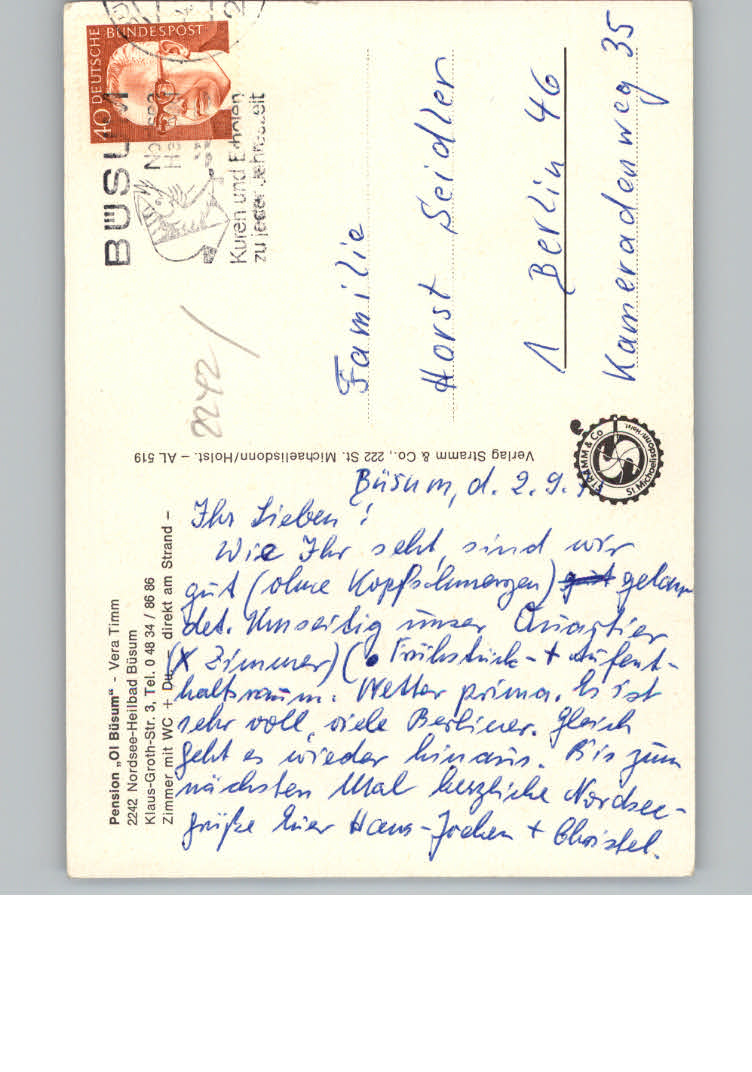 Pension „Ol Büsum“ - Vera Timm
2242 Nordsee-Heilbad Büsum
Klaus-Groth-Str. 3, Tel. 0 48 34 / 86 86
Zimmer mit WC + Du., direkt am Strand –
Büsum, d. 2. 9.
Ihr Lieben!
Wie Ihr seht, sind wir
gut (ohne Kopfschmerzen) gut gelan-
det. Umseitig unser Quartier
(X Zimmer) (● Frühstück- + Aufent-
haltsraum. Wetter prima. Es ist
sehr voll, viele Berliner. Gleich
geht es wieder hinaus. Bis zum
nächsten Mal herzliche Nordsee-
grüße Euer Hans-Jochen + Christel.
Verlag Stramm & Co., 222 St. Michaelisdonn/Holst. – AL 519
STRAMM & Co
St. Michaelisdonn/Holst.
2242/
DEUTSCHE BUNDESPOST
40
BÜSUM
Kuren und Erholen
zu jeder Jahreszeit
Familie
Horst Seidler
1 Berlin 46
Kameradenweg 35